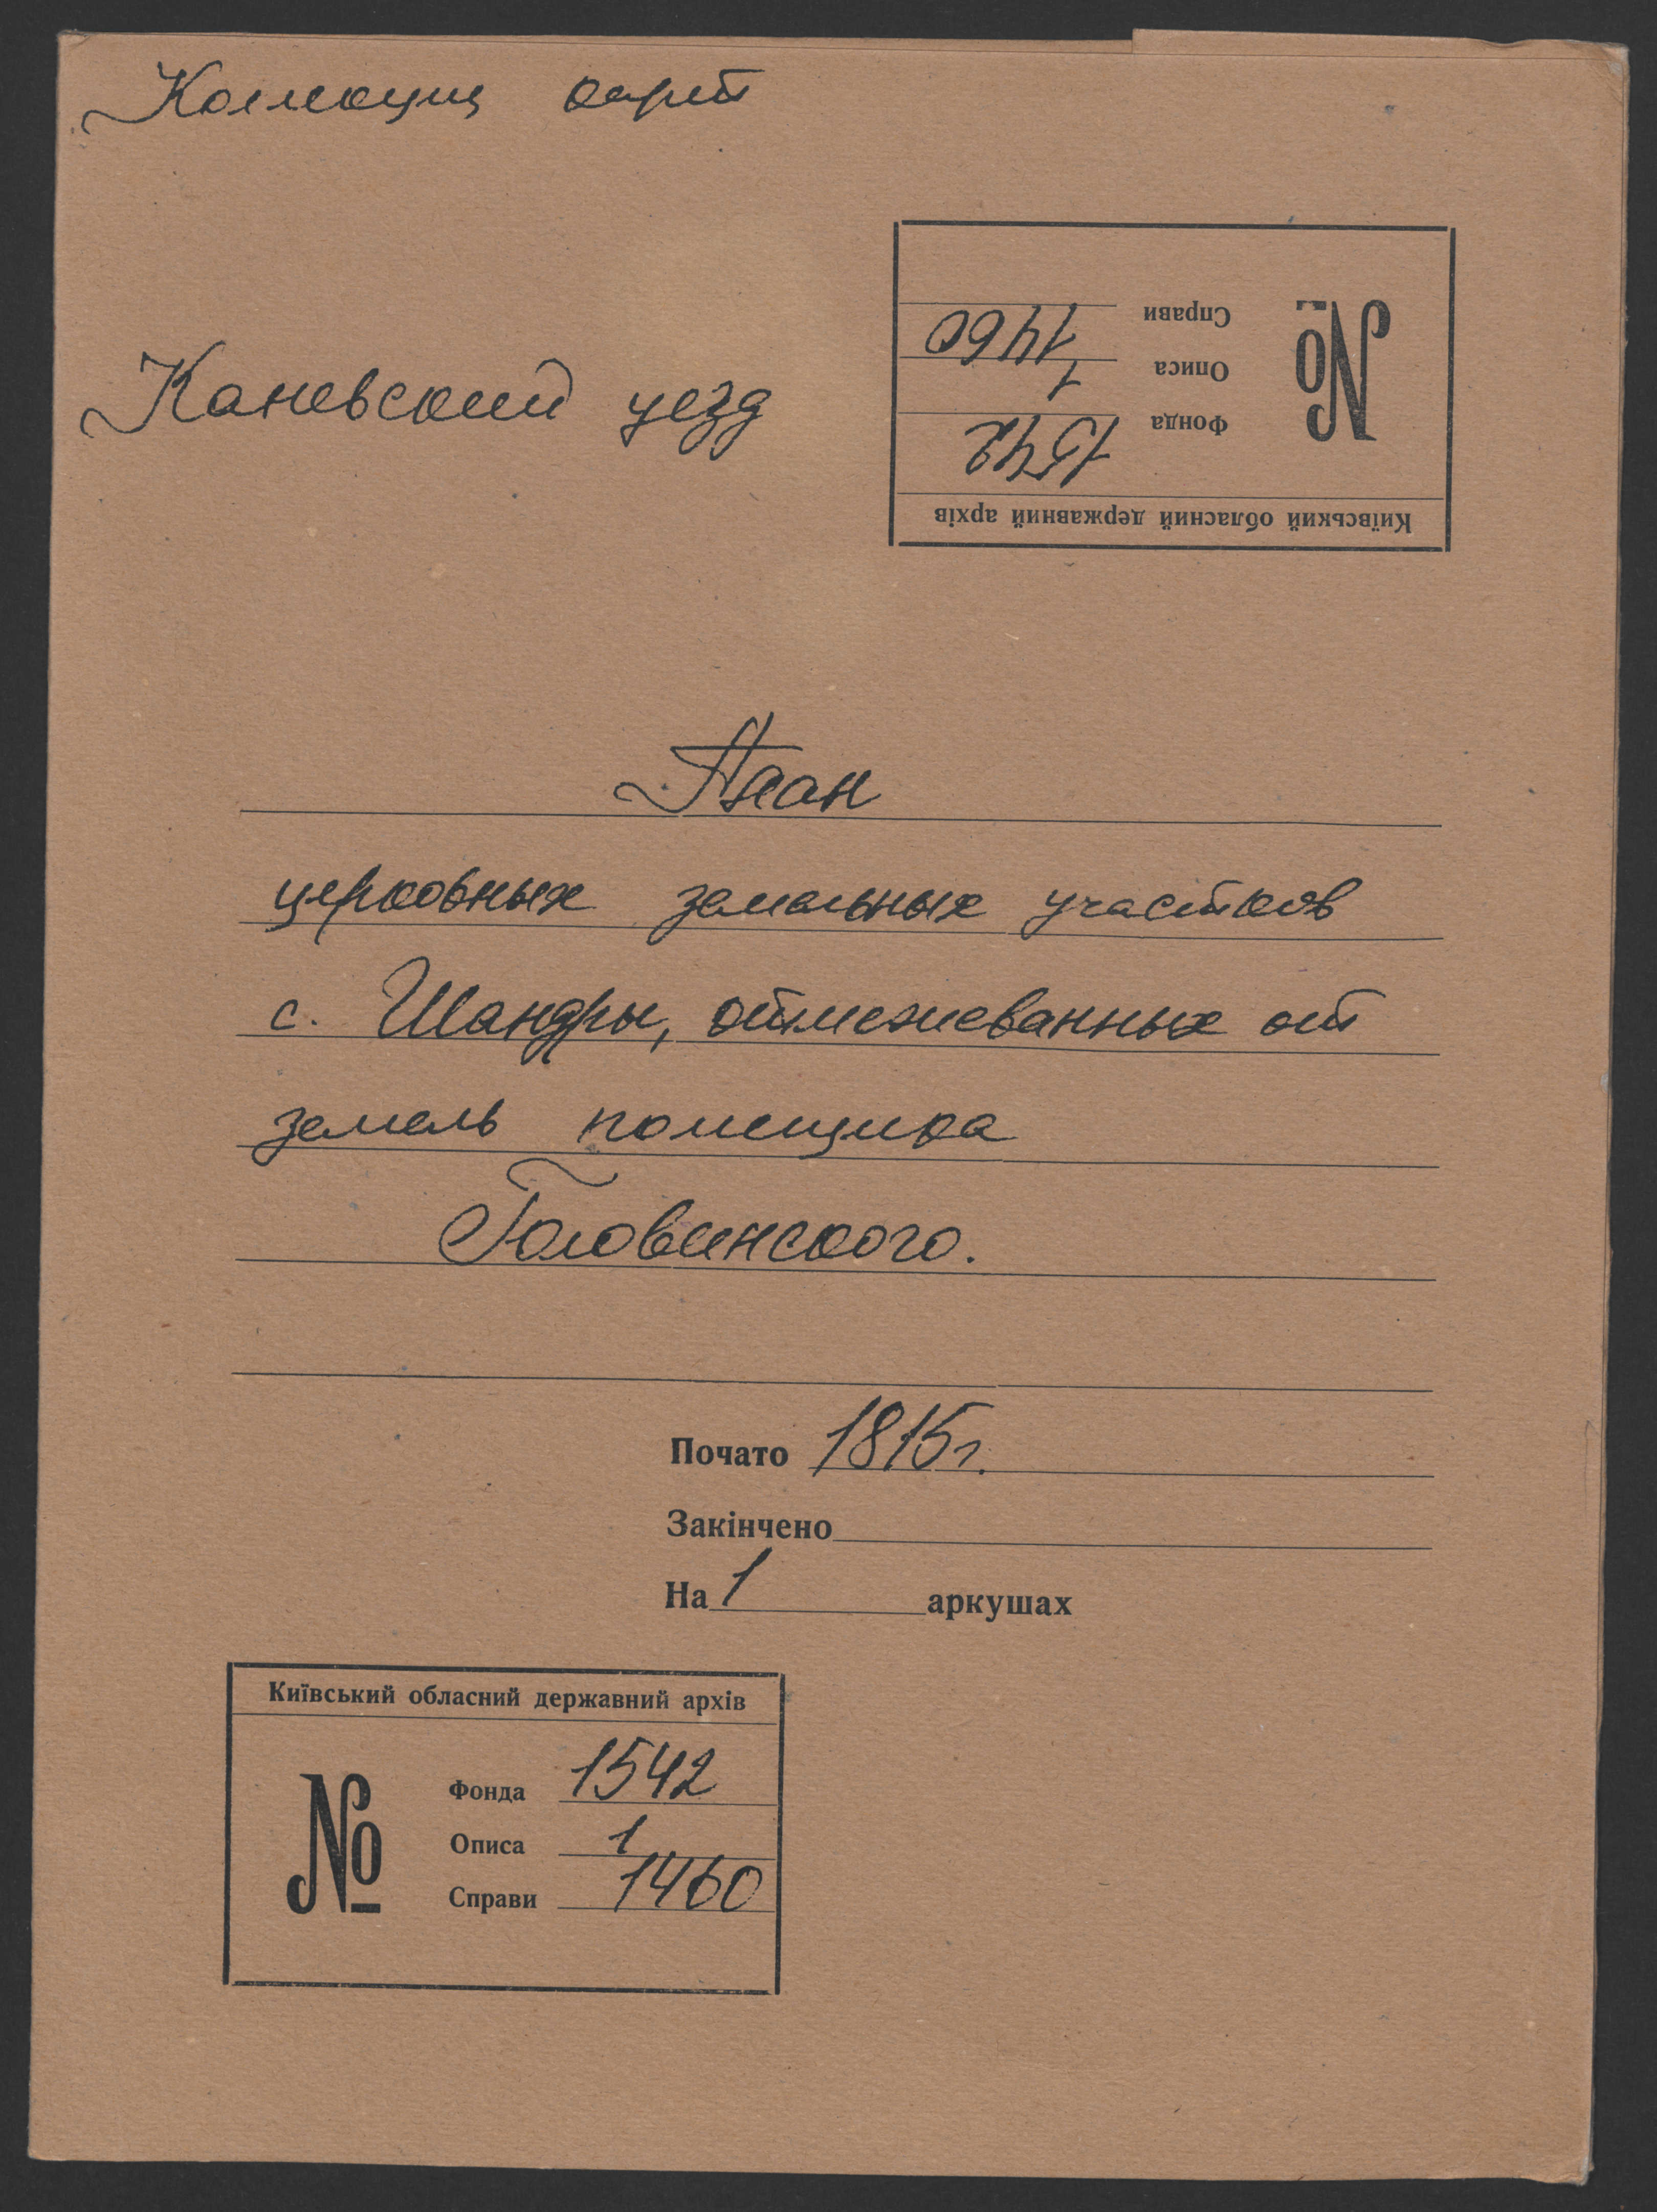 Коллекция карт
Каневский уезд
Київський обласний державний архів
№
Фонда 1542
Описа 1
Справи 1460
План
церковных земельных участков
с. Шандры, отмежеванных от
земель помещика
Головинского.
Почато 1815г.
Закінчено
На 1 аркушах
Київський обласний державний архів
№
Фонда 1542
Описа 1
Справи 1460